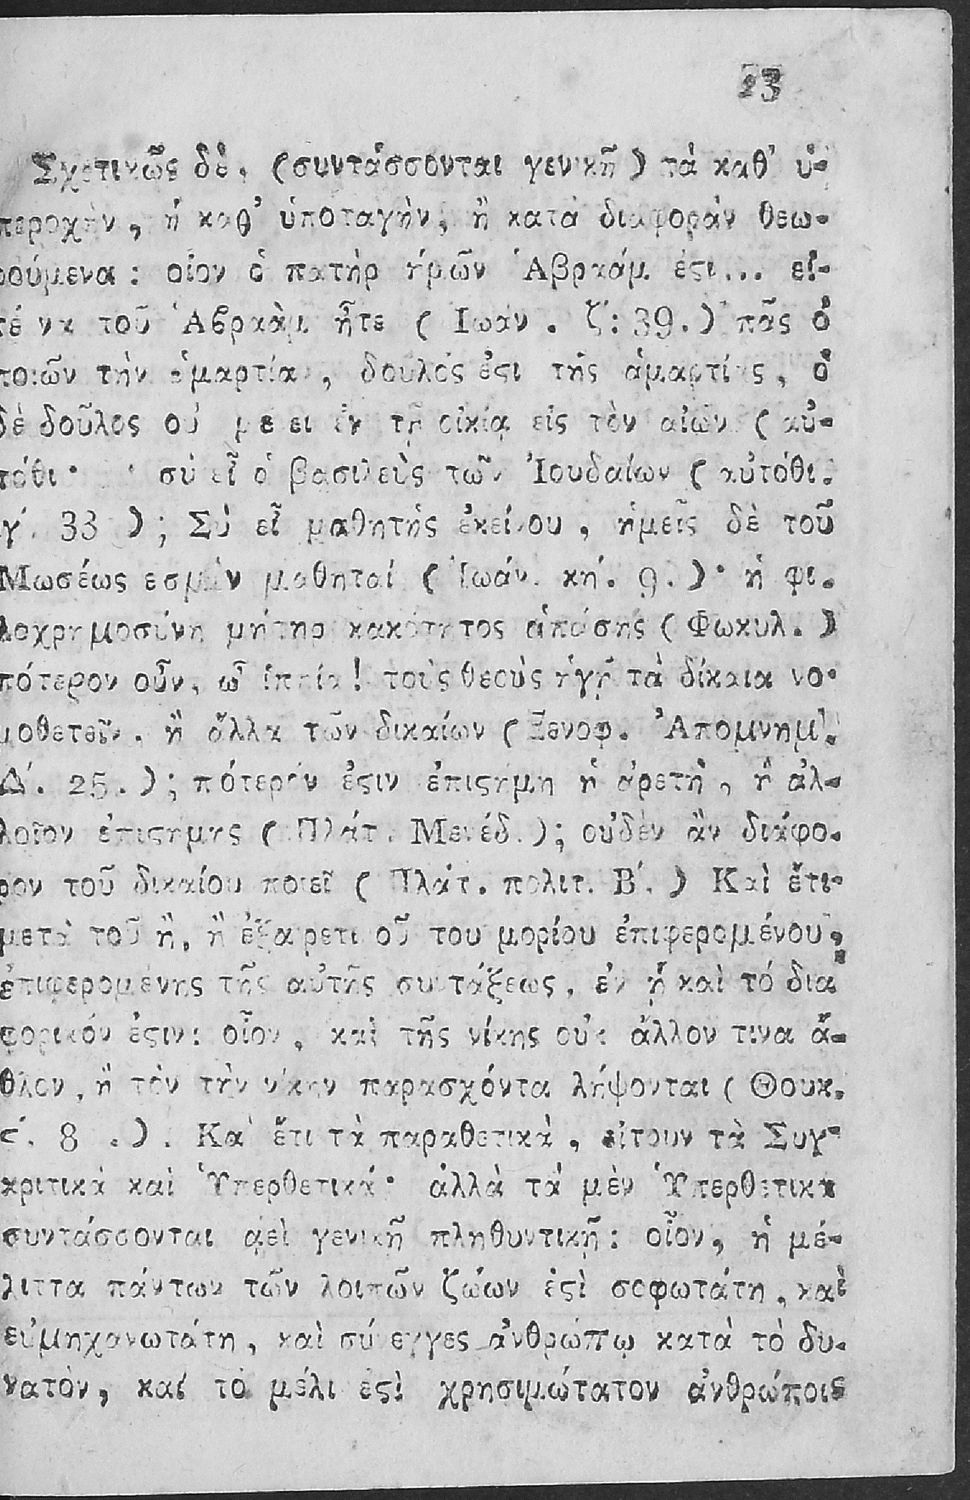 23
Σχετικῶς δὲ, (συντάσσονται γενικῇ) τὰ καθ' ὑ-
περοχὴν, ἢ καθ' ὑποταγὴν, ἢ κατὰ διαφορὰν θεω-
ρούμενα: οἷον ὁ πατὴρ ἡμῶν Ἀβραάμ ἐςι... εἰ-
τέκνα τοῦ Ἀβραὰμ ἦτε (Ἰωάν. ζ': 39.) πᾶς ὁ
ποιῶν τὴν ἁμαρτίαν, δοῦλός ἐςι τῆς ἁμαρτίας, ὁ
δὲ δοῦλος οὐ μένει ἐν τῇ οἰκίᾳ εἰς τὸν αἰῶνα (αὐ-
τόθι· σὺ εἶ ὁ βασιλεὺς τῶν Ἰουδαίων (αὐτόθι.
γ'. 33 ); Σὺ εἶ μαθητὴς ἐκείνου, ἡμεῖς δὲ τοῦ
Μωσέως εσμὲν μαθηταί (Ἰωάν. κή. 9.)· ἡ φι-
λοχρημοσύνη μήτηρ κακότητος ἁπάσης (Φωκυλ.)
πότερον οὖν, ὦ ἱππία! τοὺς θεοὺς ἡγῇ τὰ δίκαια νο-
μοθετεῖν, ἢ ἄλλα τῶν δικαίων (Ξενοφ. Ἀπομνημ.
Δ'. 25.); πότερόν ἐςιν ἐπιςήμη ἡ ἀρετὴ, ἢ ἀλ-
λοῖον ἐπιςήμης (Πλάτ. Μενέδ.); οὐδὲν ἂν διάφο-
ρον τοῦ δικαίου ποιεῖ (Πλάτ. πολιτ. Β'.) Καὶ ἔτι-
μετὰ τοῦ ἢ, ἢ ἐξαιρετικοῦ του μορίου ἐπιφερομένου,
ἐπιφερομένης τῆς αὐτῆς συντάξεως, ἐν ᾗ καὶ τό δια
φορικόν ἐςιν: οἷον, καὶ τῆς νίκης οὐκ ἄλλον τινα ἆ-
θλον, ἢ τὸν τὴν νίκην παρασχόντα λήψονται (Θουκ.
ς'. 8 .). Καὶ ἔτι τὰ παραθετικὰ, εἴτουν τὰ Συγ-
κριτικὰ καὶ Ὑπερθετικά· ἀλλὰ τὰ μὲν Ὑπερθετικὰ
συντάσσονται ἀεὶ γενικῇ πληθυντικῇ: οἷον, ἡ μέ-
λιττα πάντων τῶν λοιπῶν ζώων ἐςὶ σοφωτάτη, καὶ
εὐμηχανωτάτη, καὶ σύνεγγες ἀνθρώπῳ κατὰ τὸ δυ-
νατὸν, καὶ τὸ μέλι ἐςὶ χρησιμώτατον ἀνθρώποις